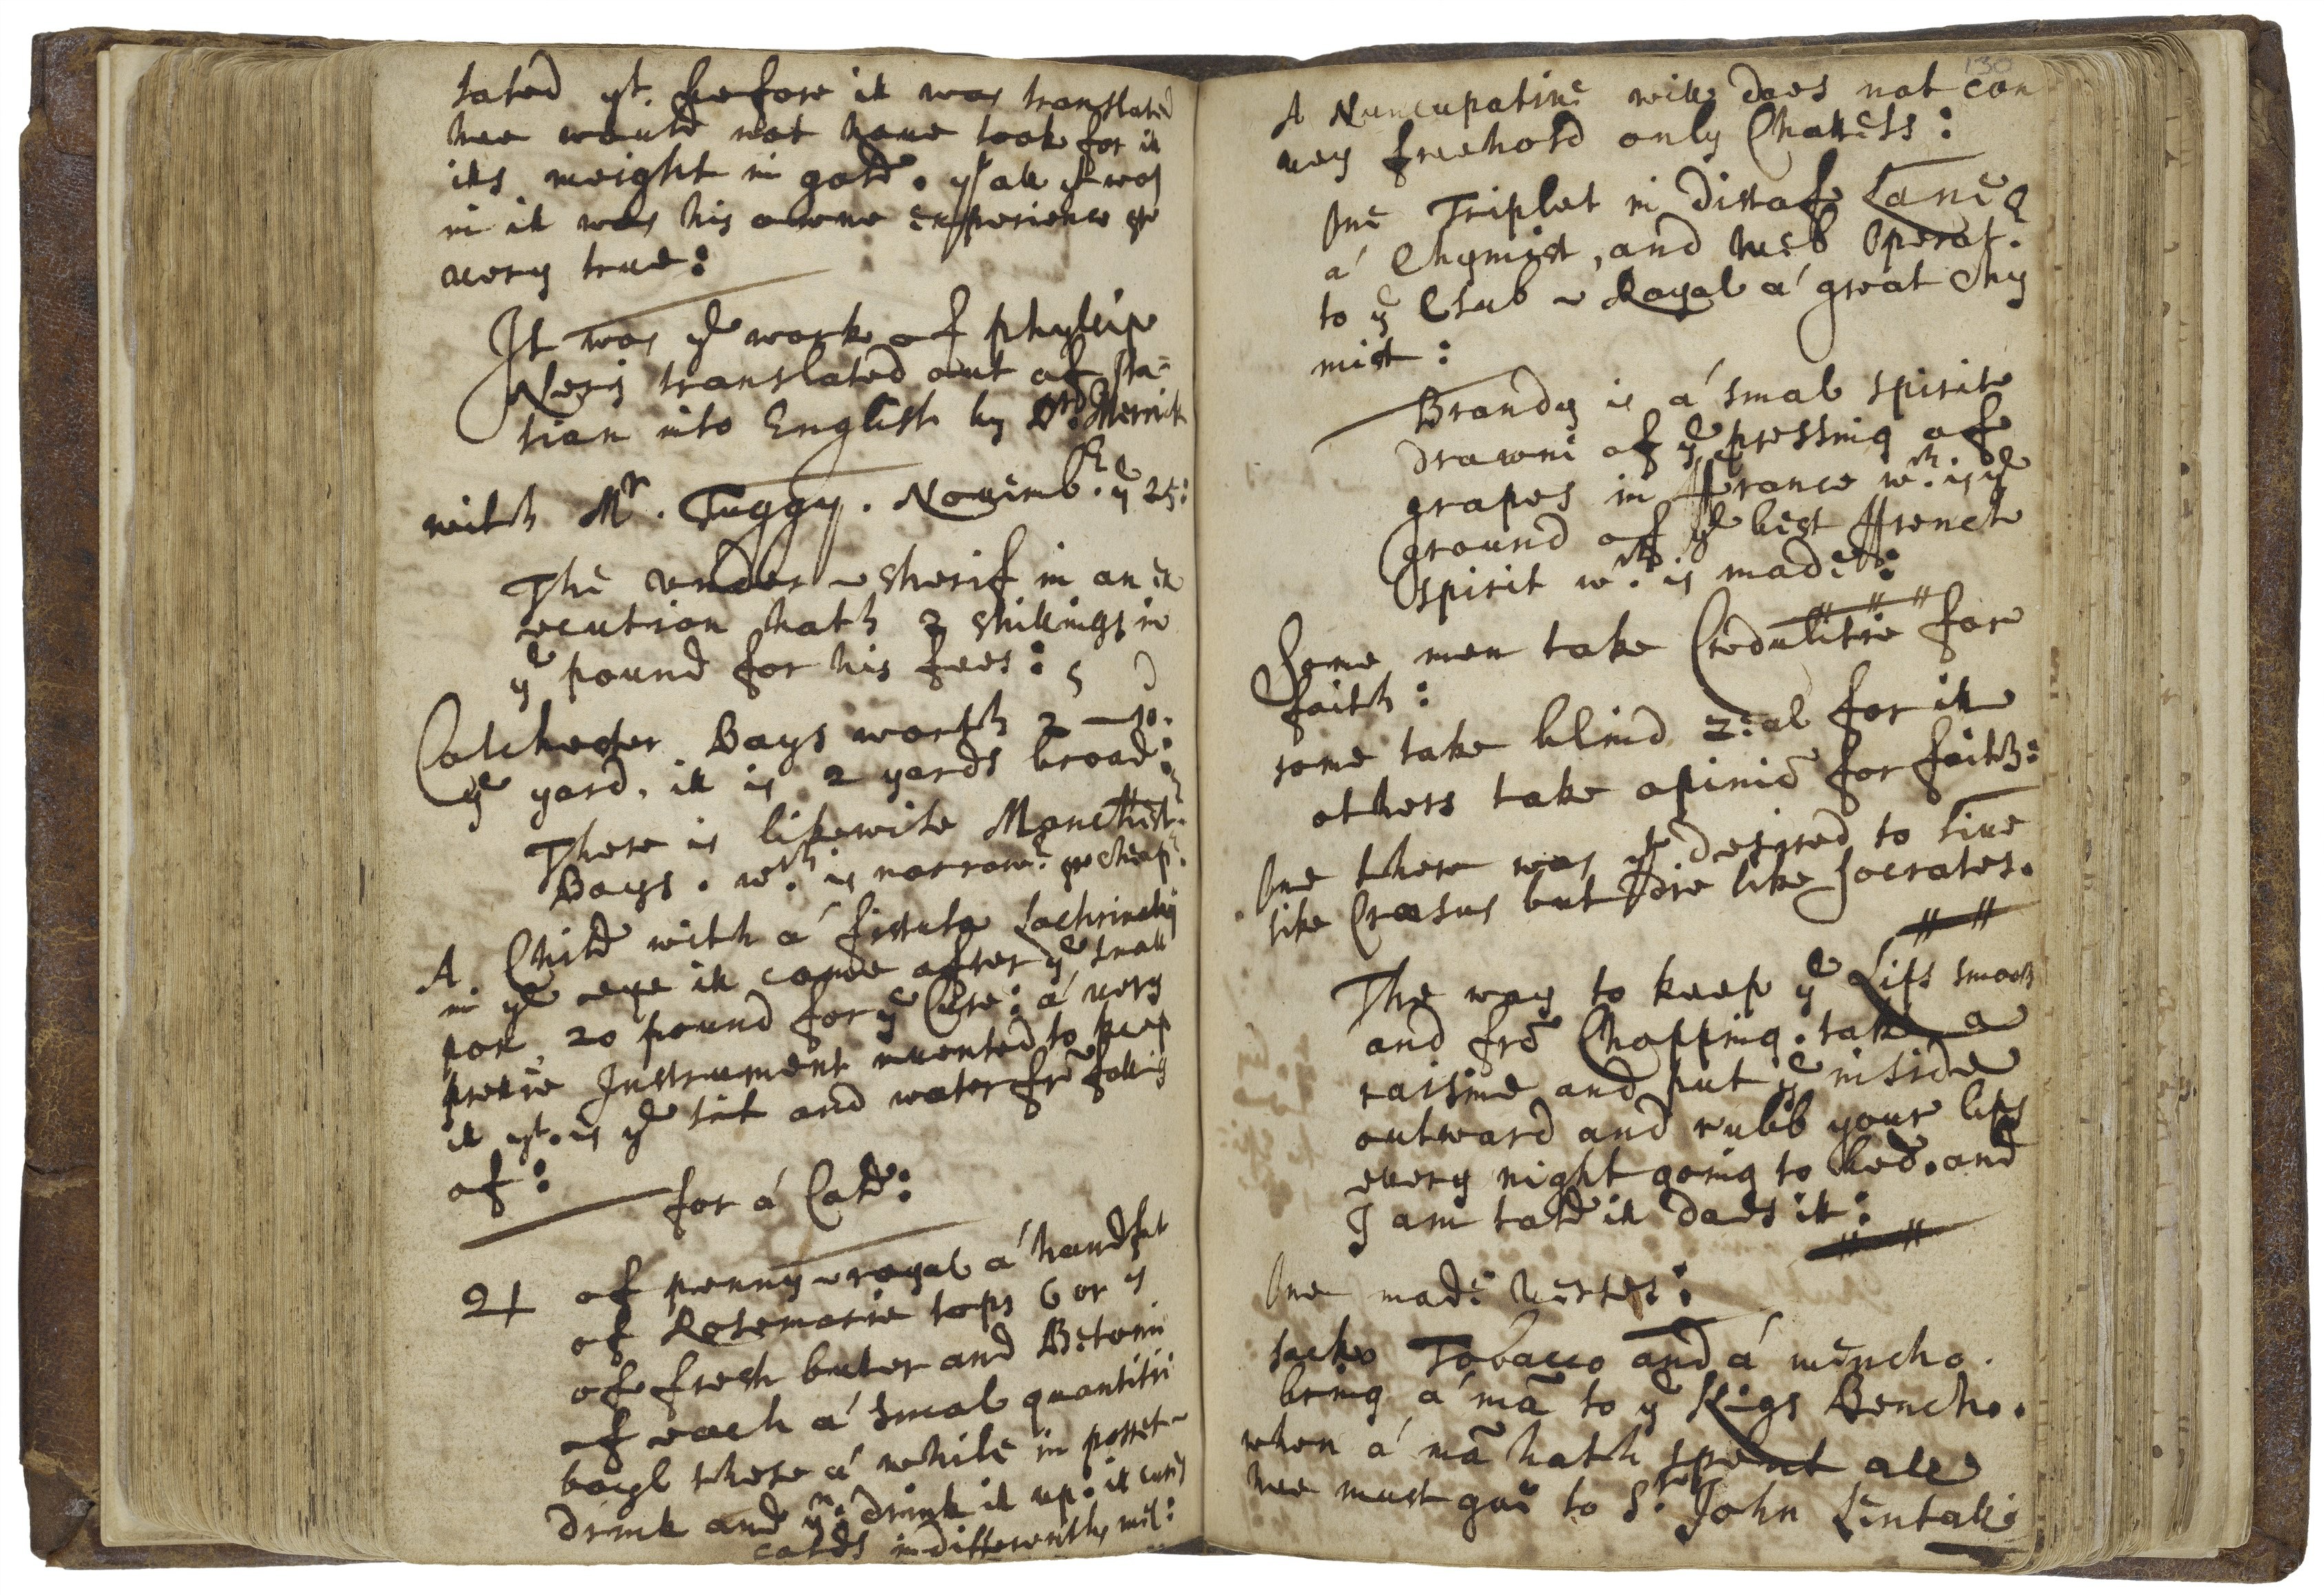 tated yt. before it was translated
hee would not haue took for it
its weight in gold. yt all yt was
in it was his owne experience &
uery true:
It was ye work of phyllip
Nerij translated out of Ita-
lian into English by Dr. Merrick
with Mr. Tuggy. Nouemb. ye 25:
The vnder-sherif in an ex
ecution hath 2 shillings in
ye pound for his fees:
Colchester Bays worth 2
ye yard. it is 2 yards broad:
There is likewise Manchest.
Bays. wch. is narrow & cheap.
A Child with á fistula Lachrimalij
in ye eye it came after ye small
pox, 20 pound for ye Cure: á uery
pretie Instrument inuented to keep
it yt. is ye salt and water frō falling
of:
for á Cold:
of penny-royal á handful
of Rosemarie tops 6 or 7
of fresh buter and Betonie
of each á smal quantitie
boyl these á while in posset-
drink and yn: drink it up: it cures
colds indifferently wel:
130
A Nuncupatiue will does not con
uey freehold only Chattels:
One Triplet in Distaf Lane
á Chymist, and hee'l Operat.
to ye Club-Royal á great Chy
mist:
Brandy is á smal spirite
drawne of ye pressing of
grapes in ffrance wch. is ye
ground of ye best ffrench
spirit wch. is made:
Some men take Credulitie for
faith:
some take blind zeal for it
others take opiniō for faith:
One there was yt desired to liue
like Crœsus but die like Socrates.
The way to keep ye Lips smooth
and frō Chopping. take a
raisine and put ye inside
outward and rubb your lips
euery night going to bed. and
I am told it does it:
One made verses:
sack Tobacco and á wenche.
bring á mā to ye Kigs Benche.
when á mā hath spent all
hee must goe to Sr. John Lentall